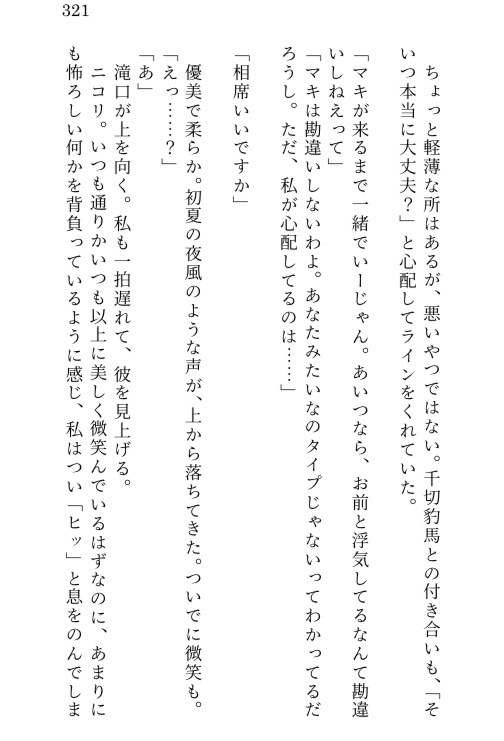 321
ちょっと軽薄な所はあるが、悪いやつではない。千切豹馬との付き合いも、「そ
いつ本当に大丈夫？」と心配してラインをくれていた。
「マキが来るまで一緒でいーじゃん。あいつなら、お前と浮気してるなんて勘違
いしねえって」
「マキは勘違いしないわよ。あなたみたいなのタイプじゃないってわかってるだ
ろうし。ただ、私が心配してるのは……」
「相席いいですか」
優美で柔らか。初夏の夜風のような声が、上から落ちてきた。ついでに微笑も。
「えっ……？」
「あ」
滝口が上を向く。私も一拍遅れて、彼を見上げる。
ニコリ。いつも通りかいつも以上に美しく微笑んでいるはずなのに、あまりに
も怖ろしい何かを背負っているように感じ、私はつい「ヒッ」と息をのんでしま